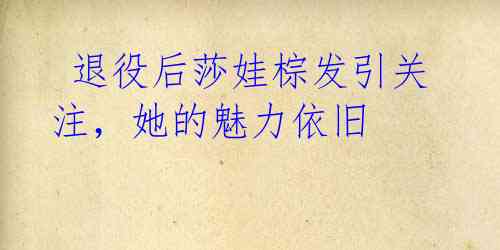 退役后莎娃棕发引关
注，她的魅力依旧